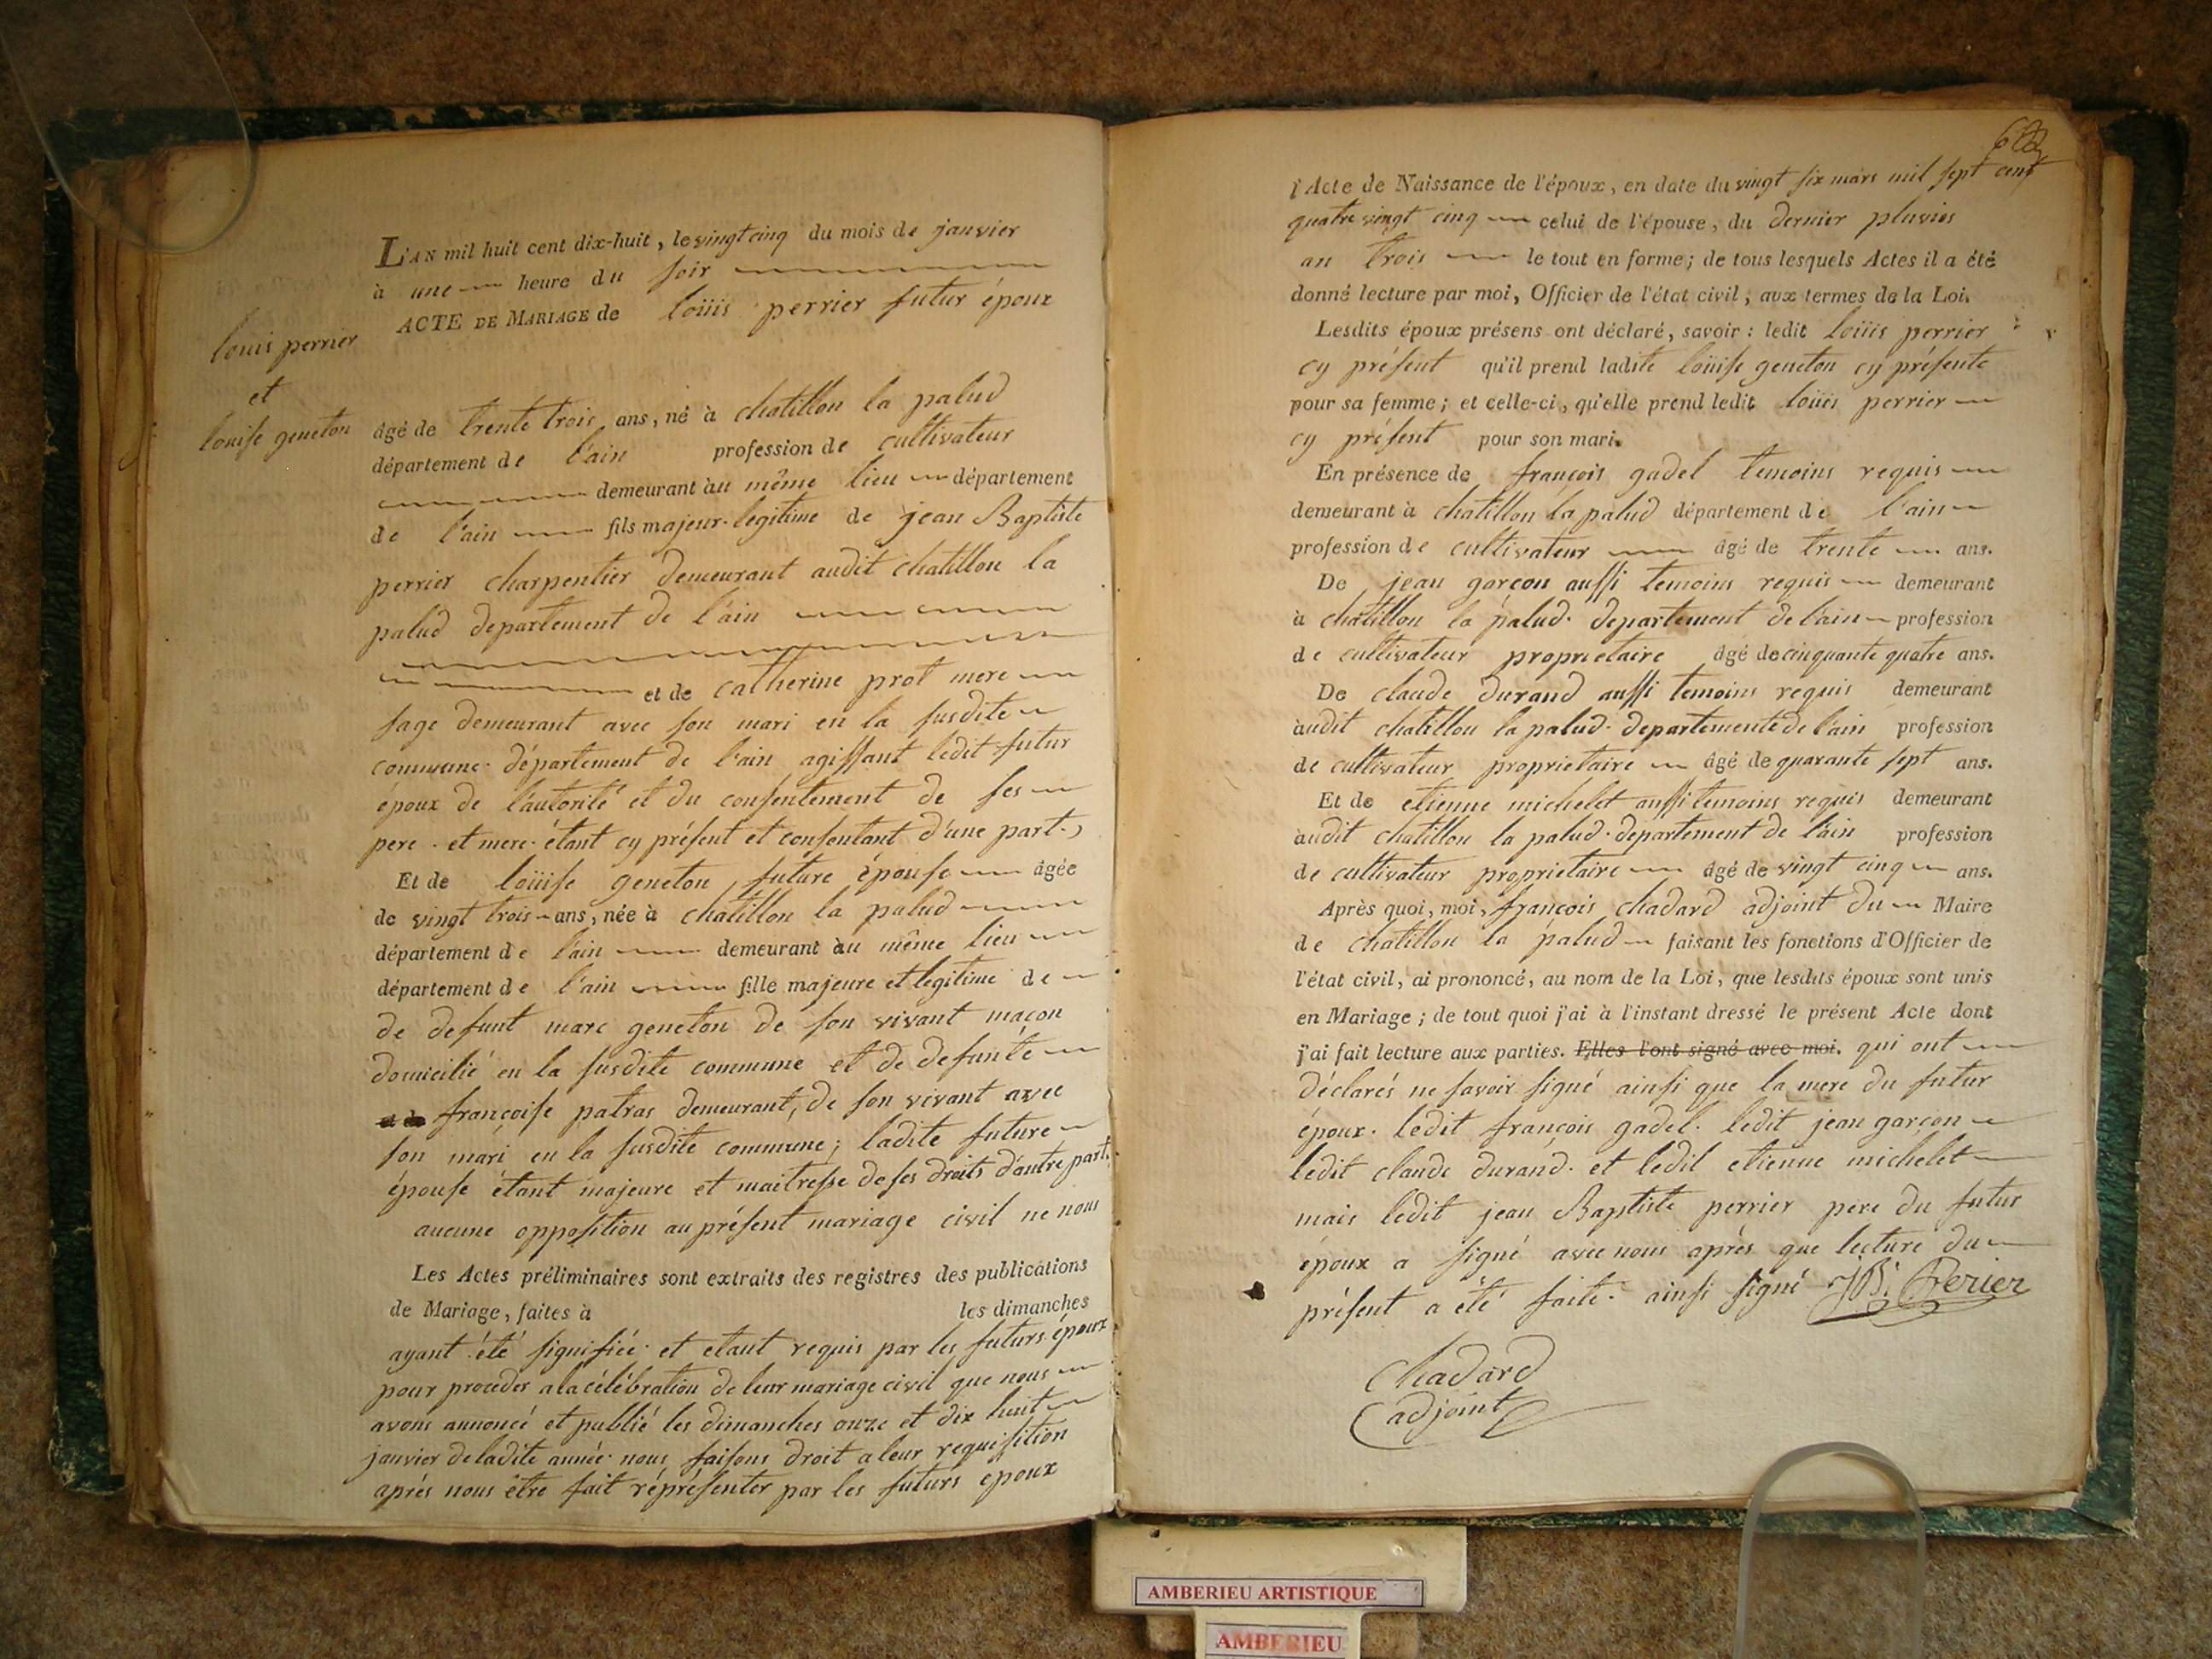 L'AN mil huit cent dix-huit, le vingt cinq du mois de janvier
à une heure du soir
ACTE DE MARIAGE de loüis perrier futur époux
louis perrier
et
louise geneton
âgé de trente trois ans, né à chatillon la palud
département de l'ain profession de cultivateur
demeurant àu même lieu département
de l'ain fils majeur legitime de jean Baptiste
perrier charpentier demeurant audit chatillon la
palud departement de l'ain
et de catherine prot mere
sage demeurant avec son mari en la susdite
commune département de l'ain agissant ledit futur
époux de l'autorité et du consentement de ses
pere et mere étant cy présent et consentant d'une part,
Et de loüise geneton, future épouse âgée
de vingt trois ans, née à chatillon la palud
département de l'ain demeurant àu même lieu
département de l'ain fille majeure et legitime de
de defunt marc geneton de son vivant maçon
domicilié en la susdite commune et de defunte
françoise patras demeurant, de son vivant avec
son mari en la susdite commune; ladite future
épouse étant majeure et maitresse de ses droits d'autre part.
aucune opposition au présent mariage civil ne nous
Les Actes préliminaires sont extraits des registres des publications
de Mariage, faites à les dimanches
ayant été signifiée et etant requis par les futurs époux
pour proceder a la célébration de leur mariage civil que nous
avons annoncé et publié les dimanches onze et dix huit
janvier de ladite année nous faisons droit a leur requisition
après nous être fait réprésenter par les futurs époux
l'Acte de Naissance de l'époux, en date du vingt six mars mil sept cent
quatre vingt cinq celui de l'épouse, du dernier pluvios
an trois le tout en forme; de tous lesquels Actes il a été
donné lecture par moi, Officier de l'état civil, aux termes de la Loi.
Lesdits époux présens ont déclaré, savoir : ledit loüis perrier
cy présent qu'il prend ladite loüise geneton cy présente
pour sa femme; et celle-ci, qu'elle prend ledit loüis perrier
cy présent pour son mari.
En présence de françois gadel temoins requis
demeurant à chatillon la palud département de l'ain
profession de cultivateur âgé de trente ans.
De jean garçon aussi temoins requis demeurant
à chatillon la palud departement de l'ain profession
de cultivateur proprietaire âgé de cinquante quatre ans.
De claude durand aussi temoins requis demeurant
àudit chatillon la palud departemente de l'ain profession
de cultivateur proprietaire âgé de quarante sept ans.
Et de etienne michelet aussi temoins requis demeurant
àudit chatillon la palud departement de l'ain profession
de cultivateur proprietaire âgé de vingt cinq ans.
Après quoi, moi, françois chadard adjoint du Maire
de chatillon la palud faisant les fonctions d'Officier de
l'état civil, ai prononcé, au nom de la Loi, que lesdits époux sont unis
en Mariage; de tout quoi j'ai à l'instant dressé le présent Acte dont
j'ai fait lecture aux parties. Elles l'ont signé avec moi. qui ont
déclarés ne savoir signé ainsi que la mere du futur
époux. ledit françois gadel. ledit jean garçon
ledit claude durand. et ledit etienne michelet
mais ledit jean Baptiste perrier pere du futur
époux a signé avec nous après que lecture du
présent a été faite. ainsi signé JB. Perier
chadard
adjoint
AMBERIEU ARTISTIQUE
AMBERIEU